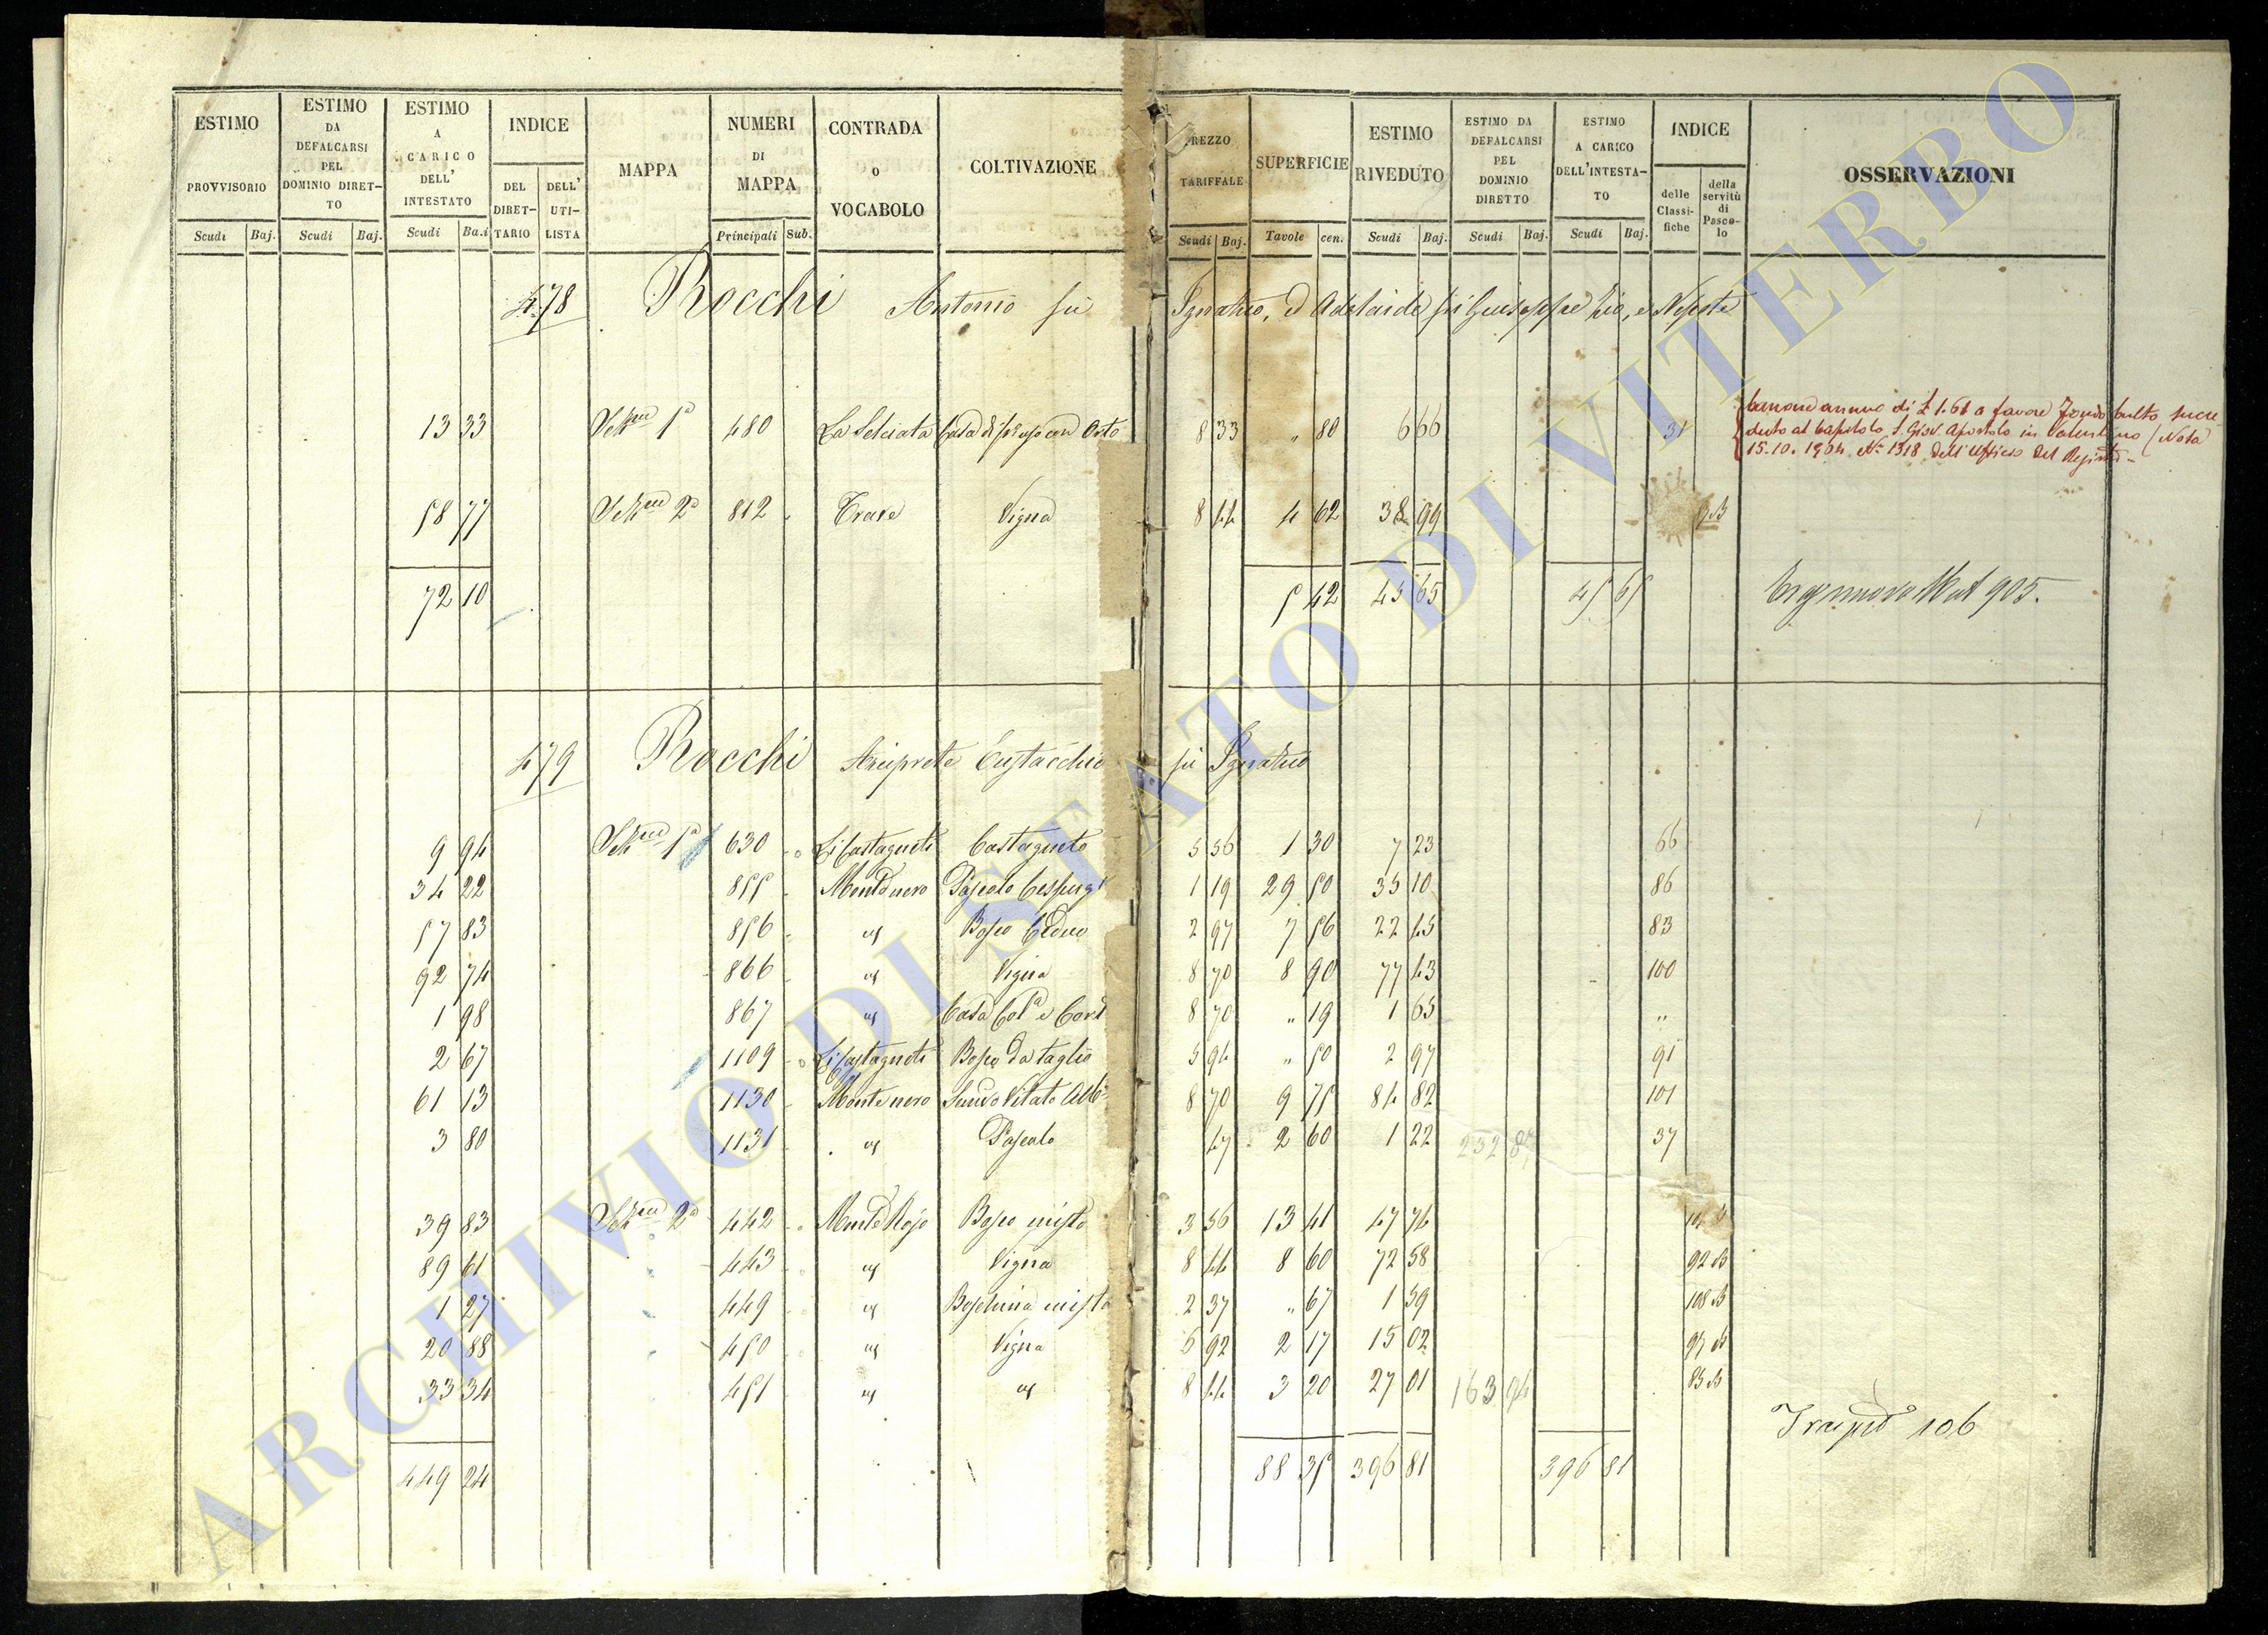 ESTIMO PROVVISORIO | ESTIMO DA DEFALCARSI PEL DOMINIO DIRETTO | ESTIMO A CARICO DELL' INTESTATO | INDICE | MAPPA | NUMERI DI MAPPA | CONTRADA O VOCABOLO | COLTIVAZIONE | PREZZO TARIFFALE | SUPERFICIE | ESTIMO RIVEDUTO | ESTIMO DA DEFALCARSI PEL DOMINIO DIRETTO | ESTIMO A CARICO DELL'INTESTATO | INDICE | OSSERVAZIONI
DEL DIRETTARIO | DELL' UTILISTA | delle Classifiche | della servitù di Pascolo
Scudi | Baj. | Scudi | Baj. | Scudi | Baj | Principali | Sub. | Scudi | Baj. | Tavole | cen. | Scudi | Baj. | Scudi | Baj. | Scudi | Baj.
478 Rocchi Antonio fu Ignatio, ed Adelaide fu Giuseppe Zio, e Nepote
13 33 | 1ª | 480 | La Selciata | Casa di pp uso con Orto | 8 33 | " 80 | 6 66 | 31
Canone annuo di £ 1.61 a favore Fondo Culto succe-
duto al Capitolo S. Giov. Apostolo in Valentano (Nota
15.10.1904 Nº 1318 dell'Ufficio del Registro -
58 77 | 2ª | 812 | Trave | Vigna | 8 44 | 4 62 | 38 99
72 10 | 5 42 | 45 65 | 45 65 | 905.
479 Rocchi Arciprete Eustacchio fu Ignatio
9 94 | 1ª | 630 | Li Castagneti | Castagneto | 5 56 | 1 30 | 7 23 | 66
34 22 | 855 | Monte nero | Pascolo Cespug | 1 19 | 29 50 | 35 10 | 86
57 83 | 856 | Bosco Ceduo | 2 97 | 7 56 | 22 45 | 83
92 74 | 866 | Vigna | 8 70 | 8 90 | 77 43 | 100
1 98 | 867 | Casa Colª e Cort | 8 70 | " 19 | 1 65 | "
2 67 | 1109 | Li Castagneti | Bosco da taglio | 5 94 | " 50 | 2 97 | 91
61 13 | 1130 | Monte nero | Vitato Alb | 8 70 | 9 75 | 84 82 | 101
3 80 | 1131 | Pascolo | 47 | 2 60 | 1 22 | 232 87 | 37
39 83 | 2ª | 442 | Monte Roso | Bosco misto | 3 56 | 13 41 | 47 74
89 61 | 443 | Vigna | 8 44 | 8 60 | 72 58 | 92 B
1 27 | 449 | Boschina mista | 2 37 | " 67 | 1 59 | 108 B
20 88 | 450 | Vigna | 6 92 | 2 17 | 15 02
33 34 | 451 | 8 44 | 3 20 | 27 01 | 163 94 | 85 B
106
449 24 | 88 35 | 396 81 | 396 81
ARCHIVIO DI STATO DI VITERBO